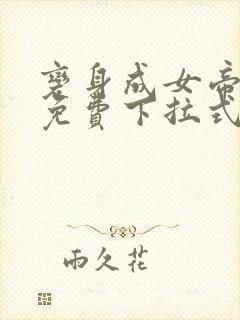 變身成女帝
免費下拉式
雨久花